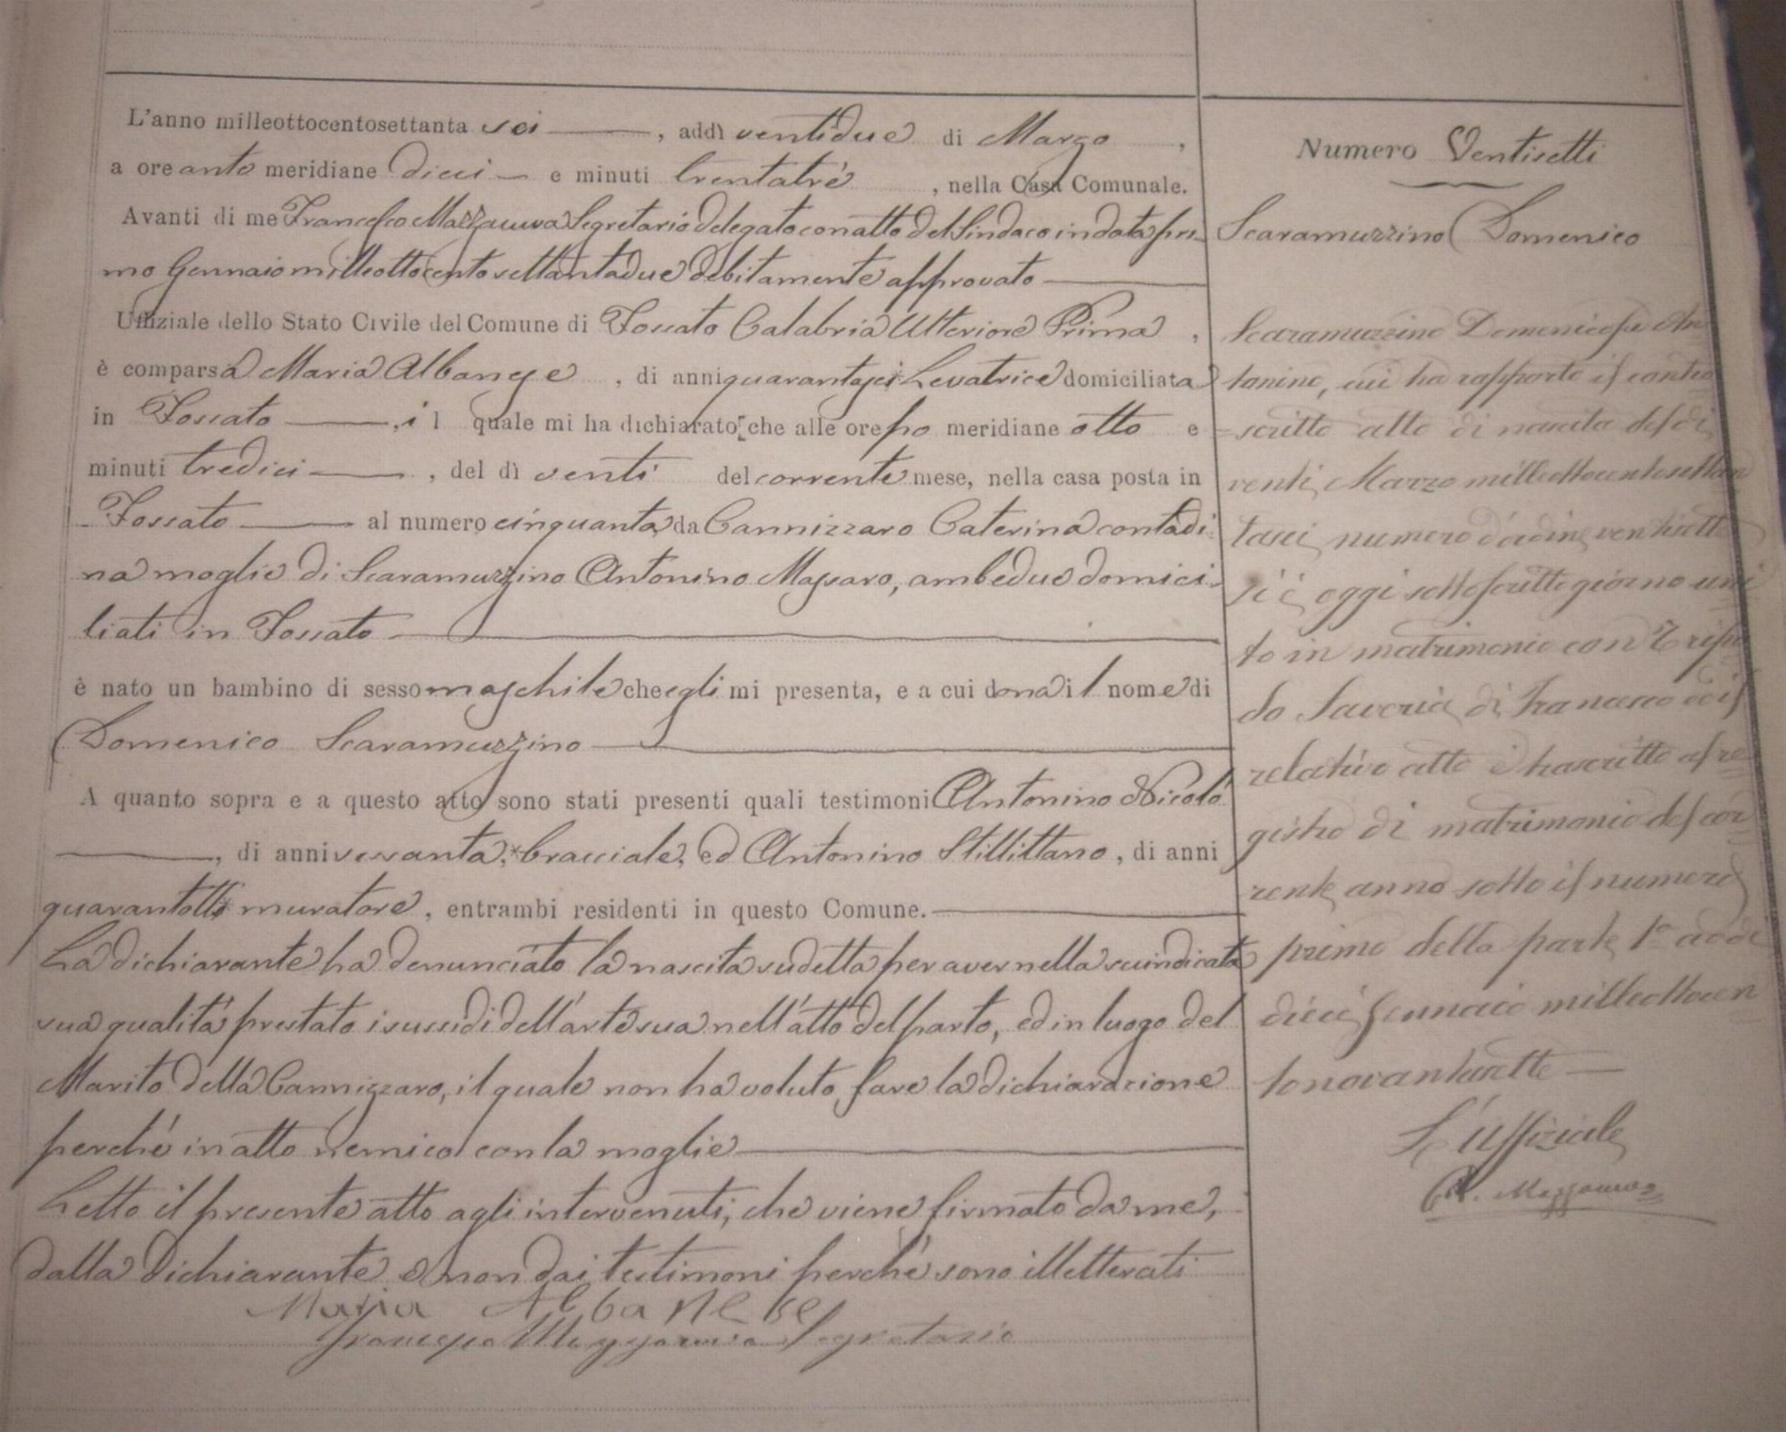 L'anno milleottocentosettanta sei, addì ventidue di Marzo,
a ore ante meridiane dieci e minuti trentatré, nella Casa Comunale.
Avanti di me Francesco Mazzacuva Segretario delegato con atto del Sindaco in data pri-
mo Gennaio milleottocentosettantadue debitamente approvato
Uffiziale dello Stato Civile del Comune di Fossato Calabria Ulteriore Prima,
è comparsa Maria Albanese, di anni quarantasei Levatrice domiciliata
in Fossato, il quale mi ha dichiarato che alle ore po meridiane otto e
minuti tredici, del dì venti del corrente mese, nella casa posta in
Fossato al numero cinquanta da Cannizzaro Caterina contadi-
na moglie di Scaramuzzino Antonino Massaro, ambedue domici-
liati in Fossato
è nato un bambino di sesso maschile che egli mi presenta, e a cui dona il nome di
Domenico Scaramuzzino
A quanto sopra e a questo atto sono stati presenti quali testimoni Antonino Nicolò
, di anni sessanta, bracciale, ed Antonino Stillittano, di anni
quarantotto muratore, entrambi residenti in questo Comune.
La dichiarante ha denunciato la nascita sudetta per aver nella suindicata
sua qualità prestato i sussidi dell'arte sua nell'atto del parto, ed in luogo del
Marito della Cannizzaro, il quale non ha voluto fare la dichiarazione
perché in atto nemico con la moglie
Letto il presente atto agli intervenuti, che viene firmato da me,
dalla dichiarante e non dai testimoni perché sono illetterati
Maria Albanese
Francesco Mazzacuva Segretario
Numero Ventisette
Scaramuzzino Domenico
Scaramuzzino Domenico fu An
tonino, cui ha rapporto il contro
scritto atto di nascita del dì
venti Marzo milleottocentosettan
tasei numero d'ordine ventisette
si è oggi sottoscritto giorno uni
to in matrimonio con Tripo
do Saveria di Francesco ed il
relativo atto è trascritto al re
gistro di matrimonio del cor
rente anno sotto il numero
primo della parte 1a addì
dieci Gennaio milleottocen
tonovantasette
L'Uffiziale
Mazzacuva